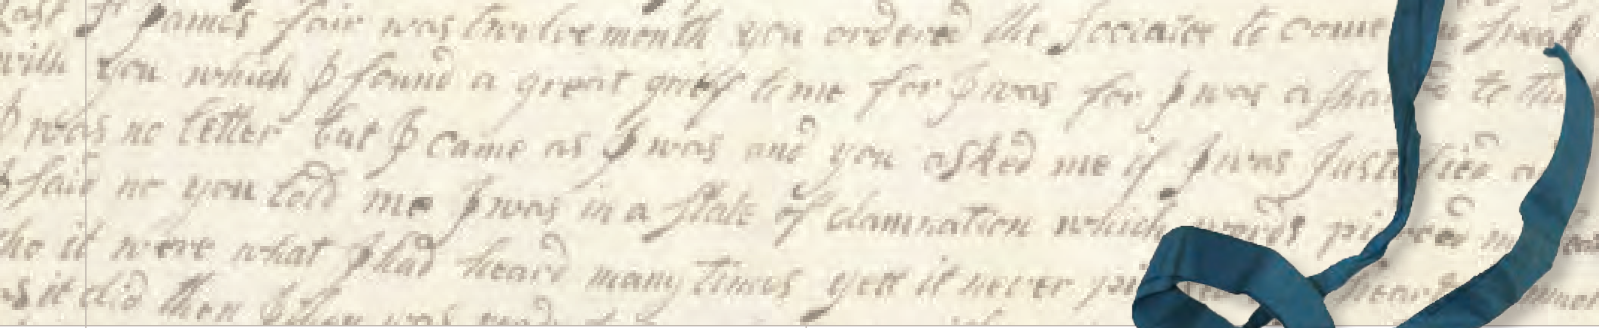 Last St James fair was twelve month you ordered the Society to come to speak
with you which I found a great grief to me for I was for I was ashamed to th
I was no better but I came as I was and you asked me if I was Justified
I said no you told me I was in a state of damnation which words pierced my
tho it were what I had heard many times yett it never heart
as it did then I then was